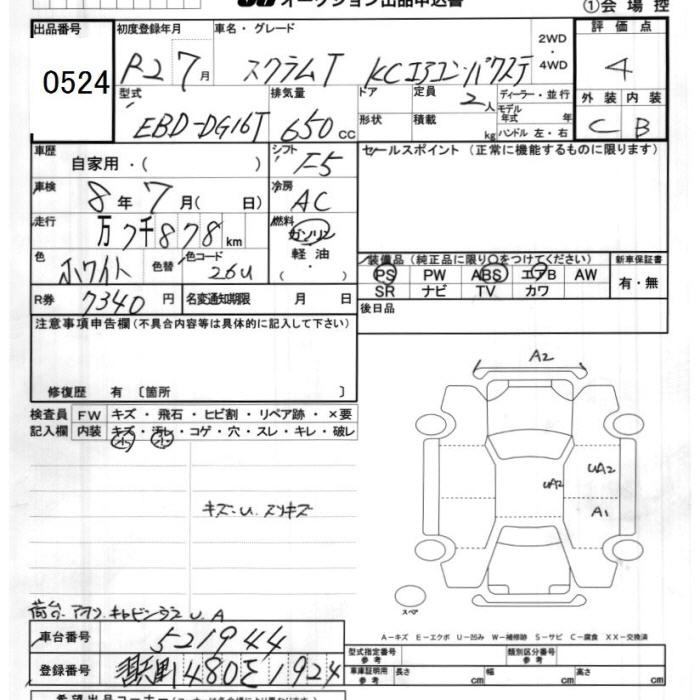 オークション出品申込書
①会場控
出品番号
0524
初度登録年月
R2 7月
車名・グレード
スクラムT KCエアコン・パワステ
2WD・4WD
評価点
4
型式
EBD-DG16T
排気量
650cc
ドア
形状
定員
2人
積載
kg
ディーラー・並行
モデル年式 年
ハンドル 左・右
外装 内装
C B
車歴
自家用・( )
シフト
F5
セールスポイント (正常に機能するものに限ります)
車検
8年 7月( 日)
冷房
AC
走行
万7千878km
燃料
ガソリン
軽油
・( )
色
ホワイト
色替
色コード
26U
装備品(純正品に限り○をつけてください)
PS PW ABS エアB AW
SR ナビ TV カワ
新車保証書
有・無
R券
7340円
名変通知期限 月 日
後日品
注意事項申告欄(不具合内容等は具体的に記入して下さい)
修復歴 有 〔箇所 〕
検査員記入欄
FW キズ・飛石・ヒビ割・リペア跡・×要
内装 キズ・汚レ・コゲ・穴・スレ・キレ・破レ
小 小
キズ-U. スリキズ
A2
UA2
UA2
A1
スペア
荷台. アオリ. キャビンウラ U. A
A-キズ E-エクボ U-凹み W-補修跡 S-サビ C-腐食 XX-交換済
車台番号
521944
型式指定番号 参考
類別区分番号 参考
登録番号
480 1924
車庫証明用 参考
長さ cm 幅 cm 高さ cm
希望出品コーナー